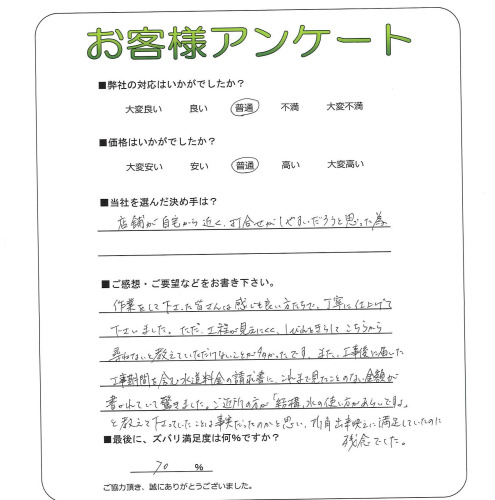 お客様アンケート
■弊社の対応はいかがでしたか？
大変良い 良い 普通 不満 大変不満
■価格はいかがでしたか？
大変安い 安い 普通 高い 大変高い
■当社を選んだ決め手は？
店舗が自宅から近く、打合せがしやすいだろうと思った為
■ご感想・ご要望などをお書き下さい。
作業をして下さった皆さんは感じも良い方たちで、丁寧に仕上げて
下さいました。ただ、工程が見えにくく、しびれをきらしてこちらから
尋ねないと教えていただけないことが多かったです。また、工事後に届いた
工事期間を含む水道料金の請求書に、これまで見たことのない金額が
書かれていて驚きました。ご近所の方が「結構、水の使い方があらいですよ」
と教えて下さってたことは事実だったのかと思い、折角出来映えに満足していたのに
残念でした。
■最後に、ズバリ満足度は何%ですか？
70 %
ご協力頂き、誠にありがとうございました。